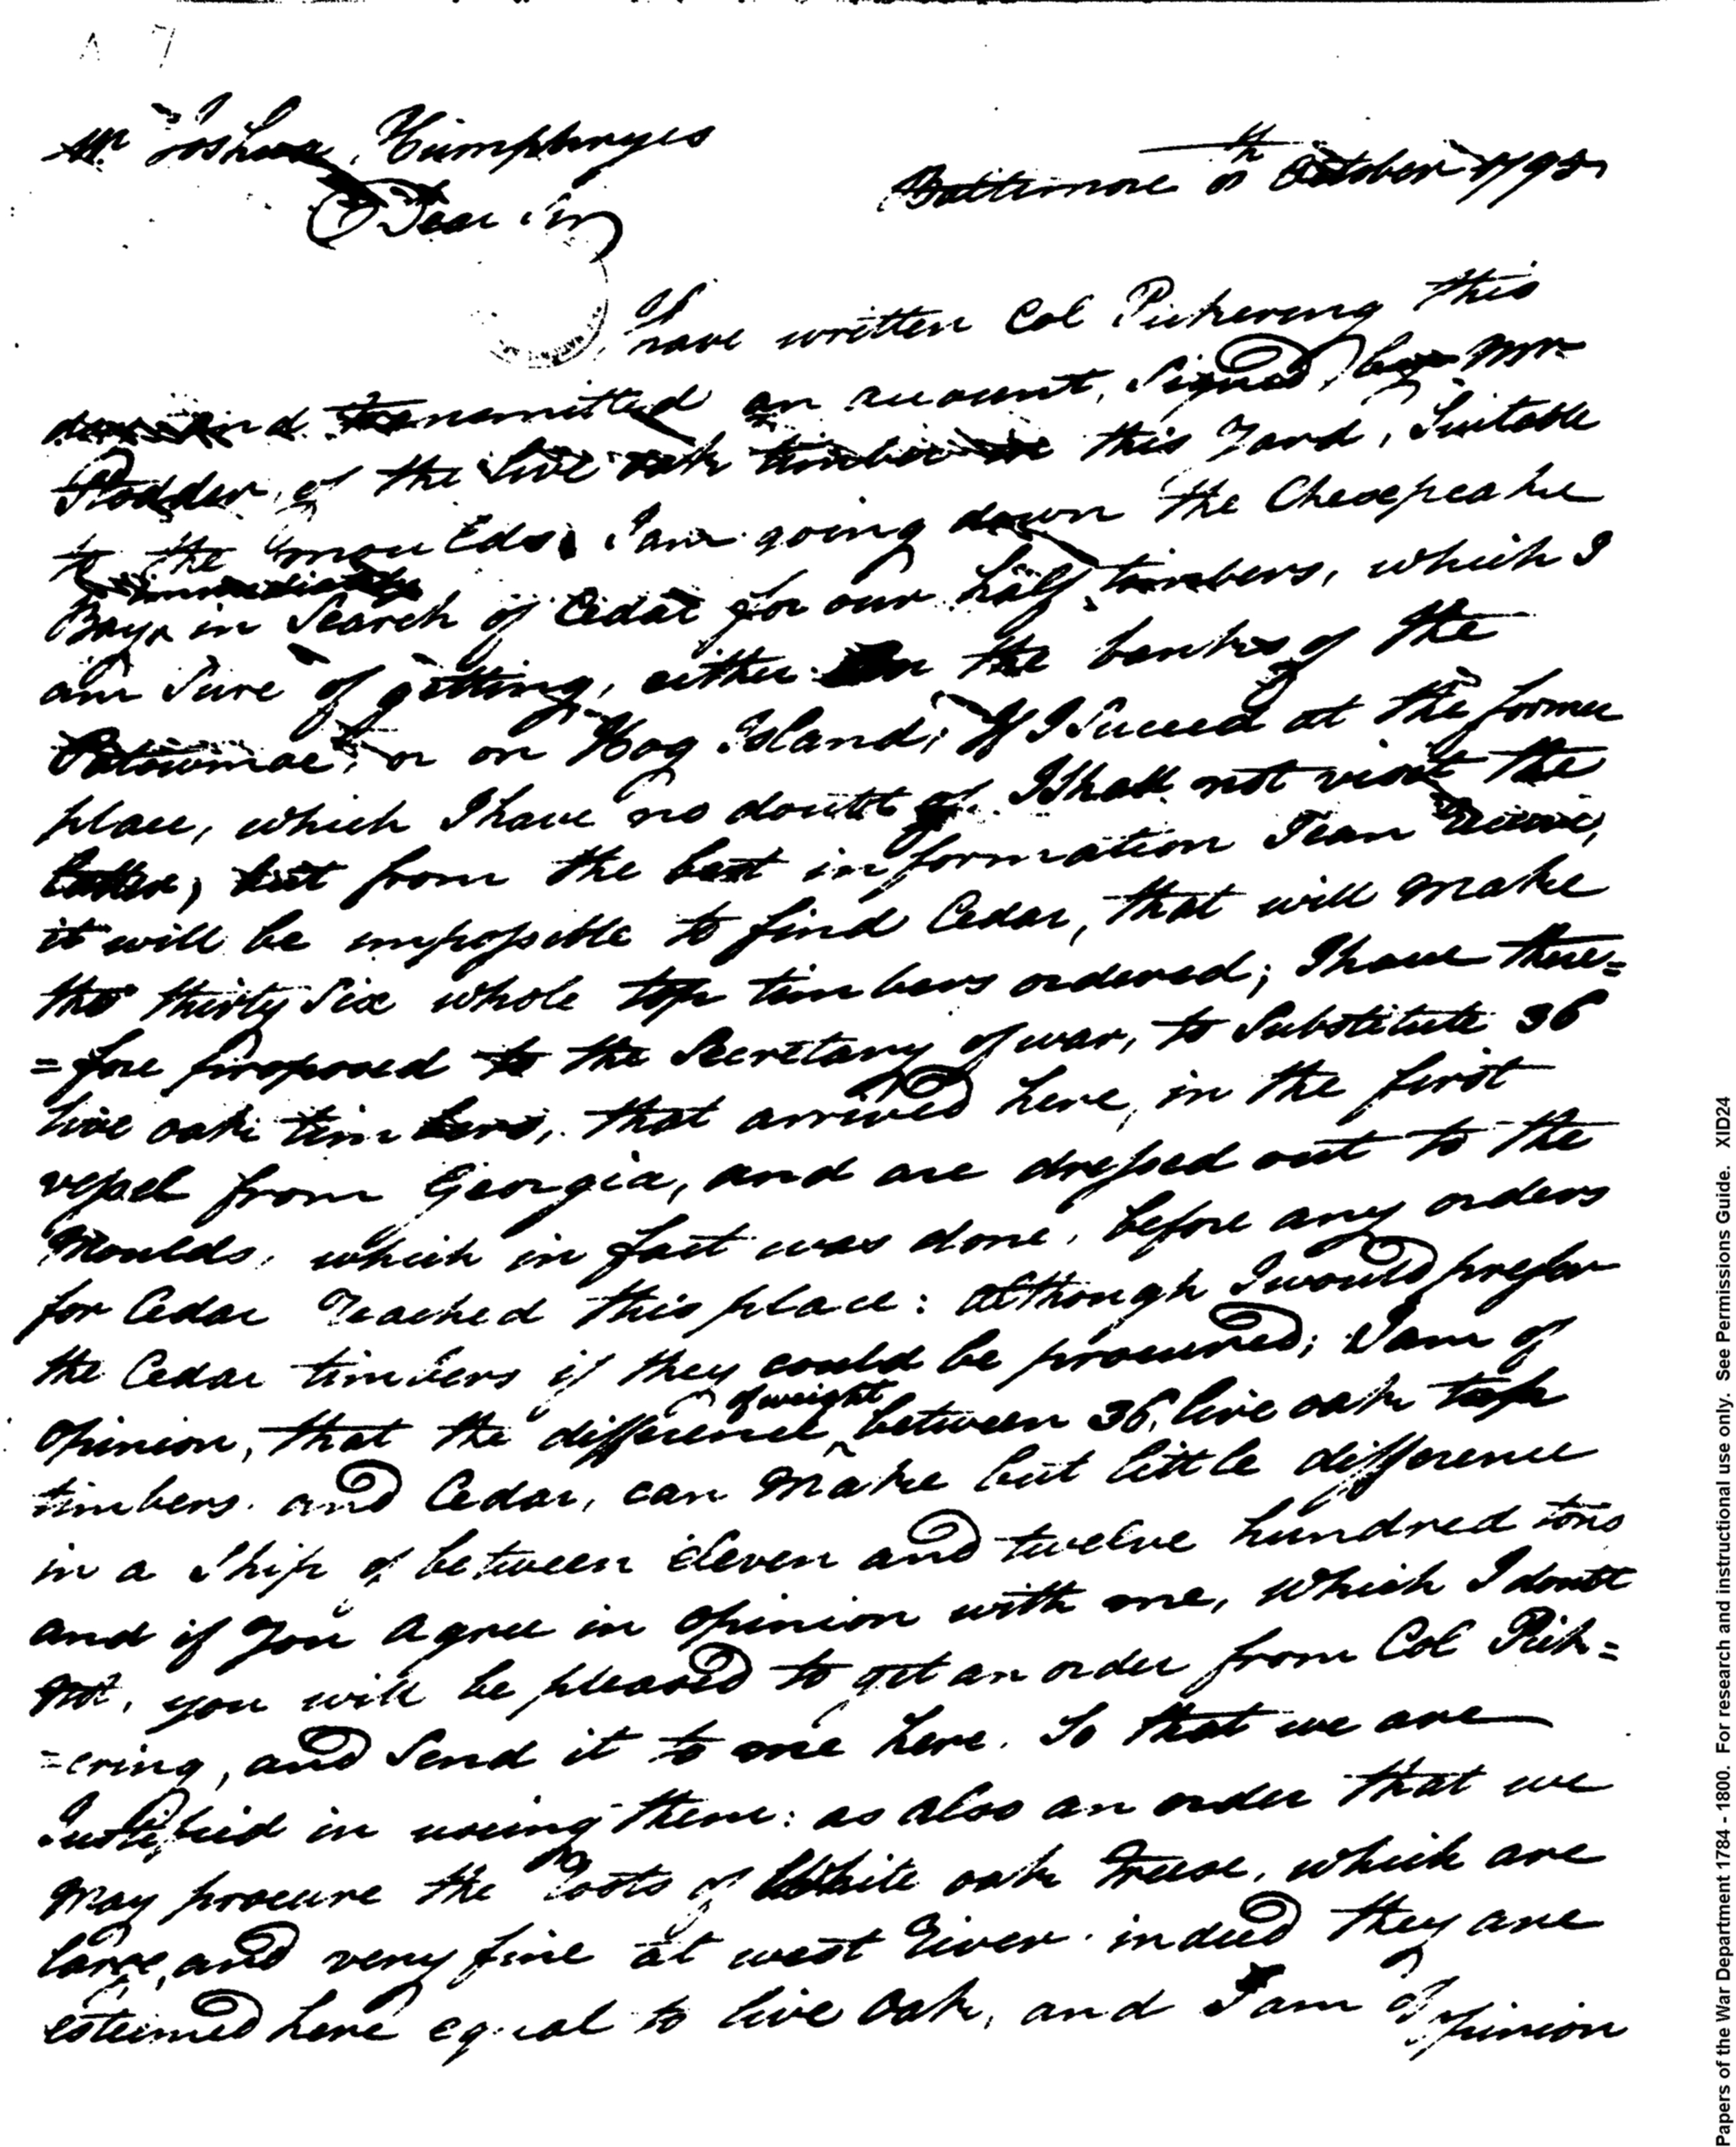 A 7
Mr Joshua Humphreys
Baltimore 8th October 1795
Dear Sir
I have written Col Pickering this
day and transmitted an account, Signed by Mr
Stodder, of the live oak timber in this Yard, Suitable
to the moulds. I am going down the Chesepeake
immediately
Bay, in Search of Cedar for our half timbers, which I
am Sure of getting, either on the banks of the
Patowmac, or on Hog Island; If I Suceed at the former
place, which I have no doubt of. I Shall not visit the
latter, but from the best information I can receive,
it will be impossible to find Cedar, that will make
the thirty Six whole top timbers ordered; I have there=
=fore proposed to the Secretary of war, to Substitute 36
live oak timbers, that arrived here, in the first
vessel from Georgia, and are dressed out to the
Moulds, which in fact was done, before any orders
for Cedar reached this place: although I would prefer
the Cedar timbers if they could be procured; I am of
of weight
Opinion, that the difference between 36, live oak top
timbers and Cedar, can make but little difference
in a Ship of between eleven and twelve hundred tons
and if you agree in opinion with me, which I doubt
not, you will be pleased to get an order from Col Pick=
=ering, and Send it to me here. So that we are
Justified in useing them: as also an order that we
may procure the roots of White oak Trees, which are
large, and very fine at west River. indeed they are
esteemed here equal to live Oak, and I am of
Opinion
Papers of the War Department 1784 - 1800. For research and instructional use only. See Permissions Guide. XID24